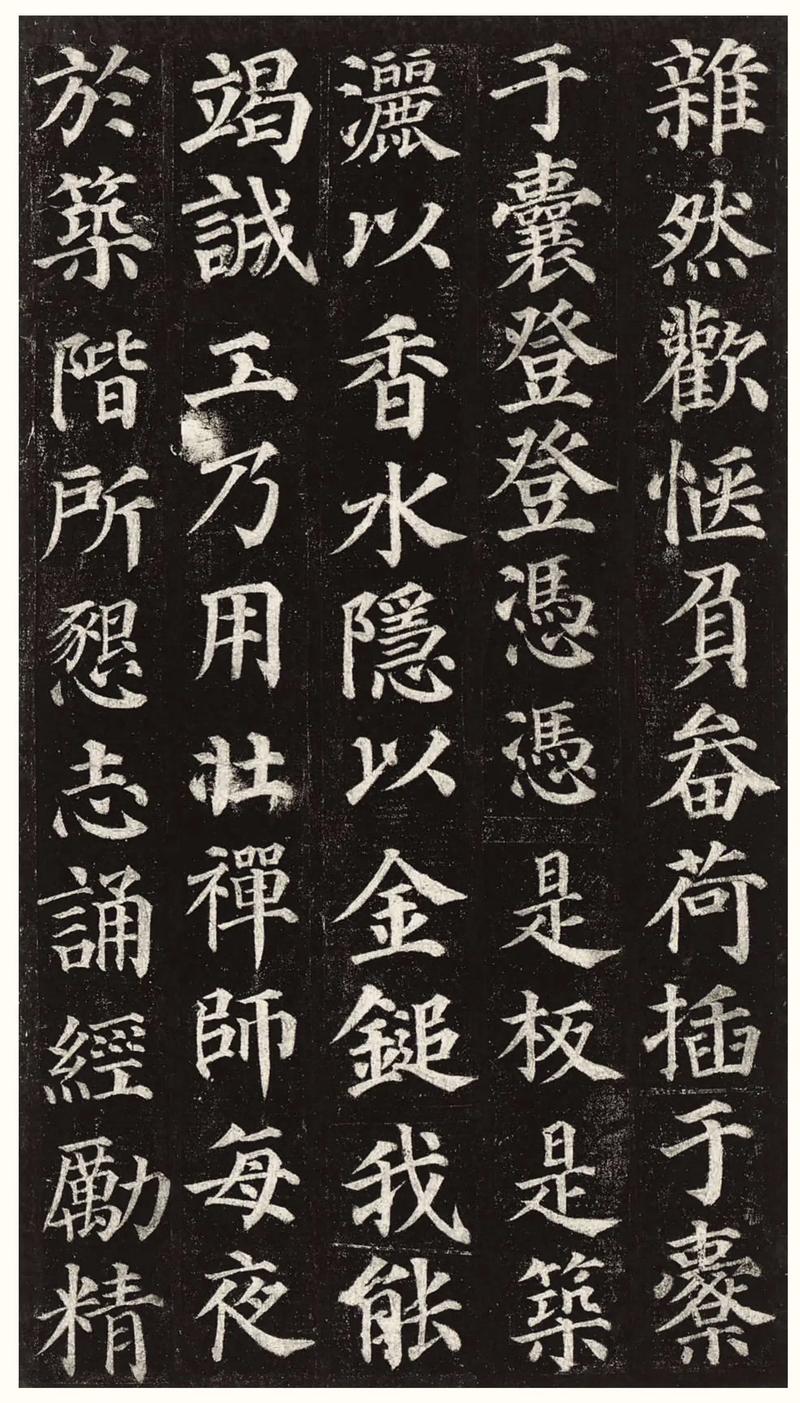 雜然歡愜負畚荷插于橐
于囊登登憑憑是板是築
灑以香水隱以金鎚我能
竭誠工乃用壯禪師每夜
於築階所懇志誦經勵精